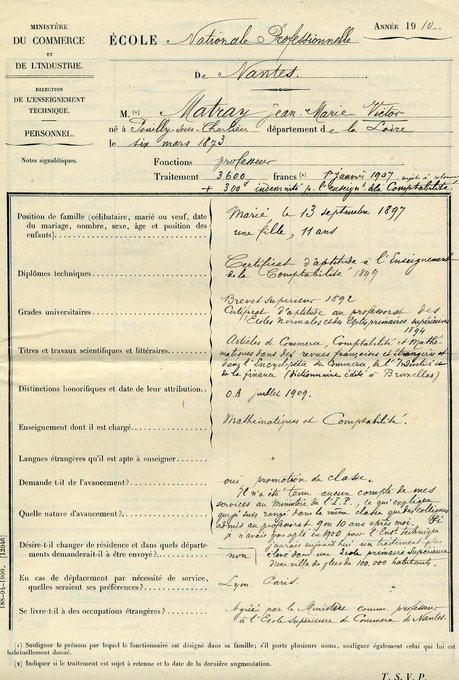 MINISTÈRE
DU COMMERCE
ET
DE L'INDUSTRIE.
DIRECTION
DE L'ENSEIGNEMENT
TECHNIQUE.
PERSONNEL.
Notes signalétiques.
ANNÉE 1910.
ÉCOLE Nationale Professionnelle
DE Nantes.
M. (1) Matray Jean-Marie Victor
né à Pouilly-sous-Charlieu département de la Loire
le six mars 1873
Fonctions professeur
Traitement 3600 francs (2) 1er janvier 1907 sujet à retenue
+ 300f indemnité pr l'enseignt de la Comptabilité
Position de famille (célibataire, marié ou veuf, date
du mariage, nombre, sexe, âge et position des
enfants)
Marié le 13 septembre 1897
une fille, 11 ans
Diplômes techniques
Certificat d'aptitude à l'Enseignement
de la Comptabilité 1899
Grades universitaires
Brevet supérieur 1892
Certificat d'aptitude au professorat des
Ecoles Normales et des Ecoles primaires supérieures
1894
Titres et travaux scientifiques et littéraires
Articles de Commerce, Comptabilité et Mathé-
matiques dans des revues françaises et étrangères et
dans l'Encyclopédie du Commerce, de l'Industrie et
de la finance (Dictionnaire édité à Bruxelles)
Distinctions honorifiques et date de leur attribution
O.A. juillet 1909.
Enseignement dont il est chargé
Mathématiques et Comptabilité.
Langues étrangères qu'il est apte à enseigner
"
Demande t-il de l'avancement?
oui, promotion de classe.
Quelle nature d'avancement?
Il n'a été tenu aucun compte de mes
services au Ministère de l'I.P., ce qui explique
que je suis rangé dans la même classe que des collègues
admis au professorat 9 ou 10 ans après moi. Si
je n'avais pas opté en 1908 pour l'Enst Technique
j'aurais aujourd'hui un traitement plus
élevé dans une Ecole primaire supérieure
d'une ville de plus de 100.000 habitants.
Désire-t-il changer de résidence et dans quels départe-
ments demanderait-il à être envoyé?
non
En cas de déplacement par nécessité de service,
quelles seraient ses préférences?
Lyon. Paris.
Se livre-t-il à des occupations étrangères?
Agréé par le Ministère comme professeur
à l'Ecole Supérieure de Commerce de Nantes.
(1) Souligner le prénom par lequel le fonctionnaire est désigné dans sa famille; s'il porte plusieurs noms, souligner également celui qui lui est
habituellement donné.
(2) Indiquer si le traitement est sujet à retenue et la date de la dernière augmentation.
T. S. V. P.
188-94-1909. [12046]